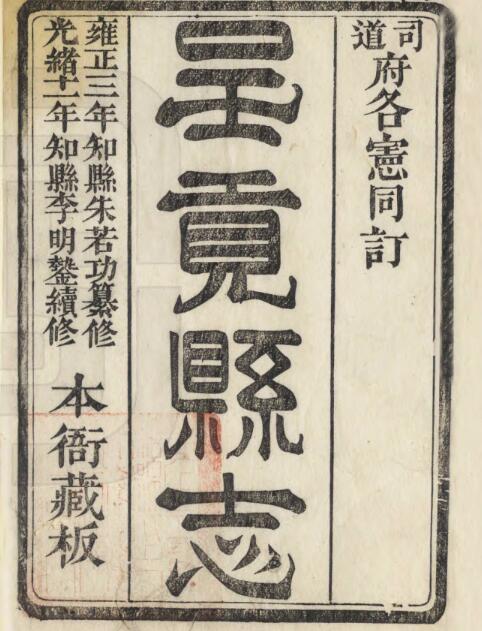 司道府各憲同訂
呈貢縣志
雍正三年知縣朱若功纂修
光緒十一年知縣李明鋆續修
本衙藏板